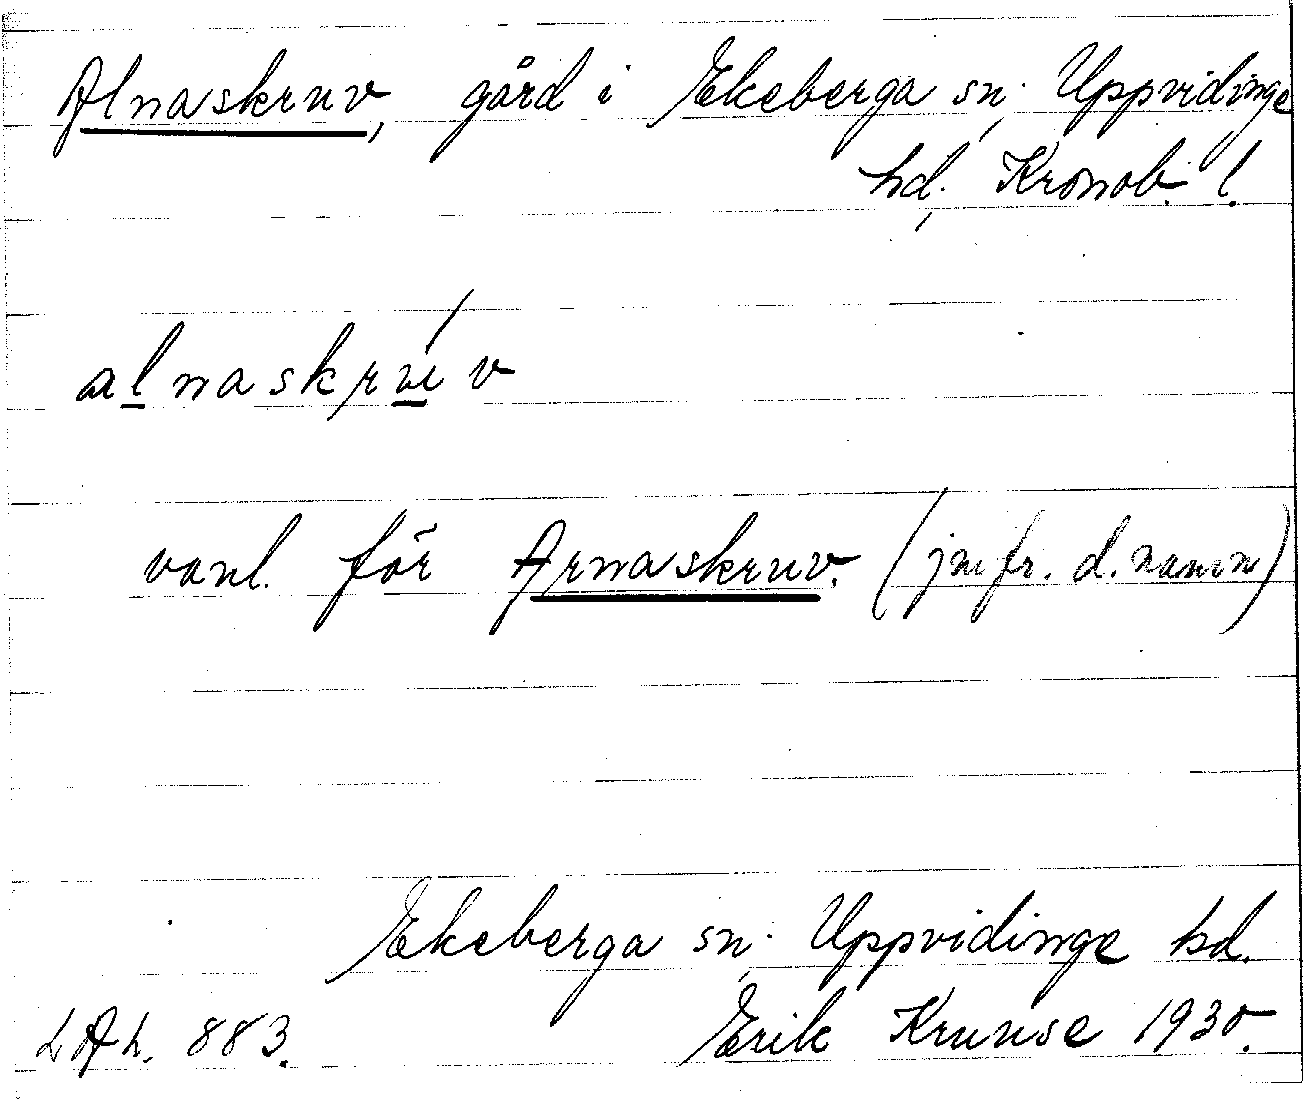 Alnaskruv, gård i Ekeberga sn. Uppvidinge
hd, Kronob. l.
alnaskrúv
vanl. för Arnaskruv. (jmfr. d. namn)
Ekeberga sn. Uppvidinge hd.
LAL. 883. Erik Krunse 1930.